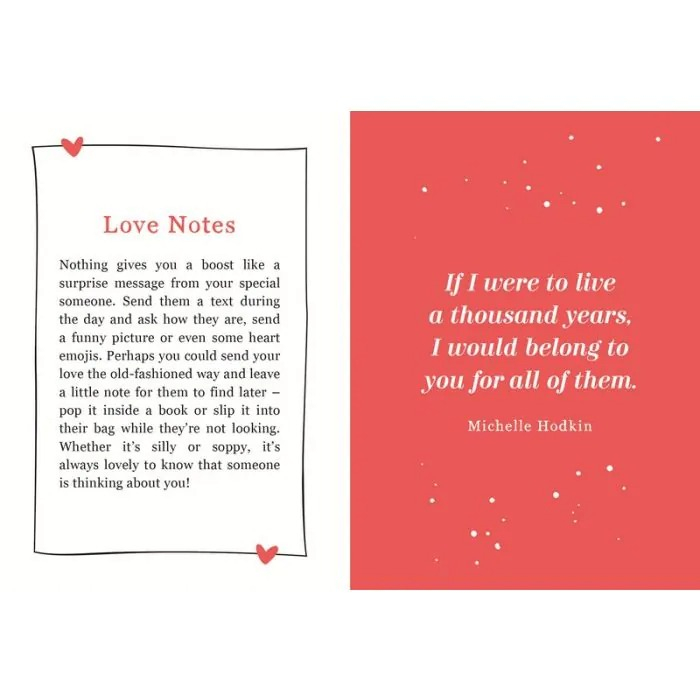 Love Notes
Nothing gives you a boost like a
surprise message from your special
someone. Send them a text during
the day and ask how they are, send
a funny picture or even some heart
emojis. Perhaps you could send your
love the old-fashioned way and leave
a little note for them to find later –
pop it inside a book or slip it into
their bag while they're not looking.
Whether it's silly or soppy, it's
always lovely to know that someone
is thinking about you!
If I were to live
a thousand years,
I would belong to
you for all of them.
Michelle Hodkin